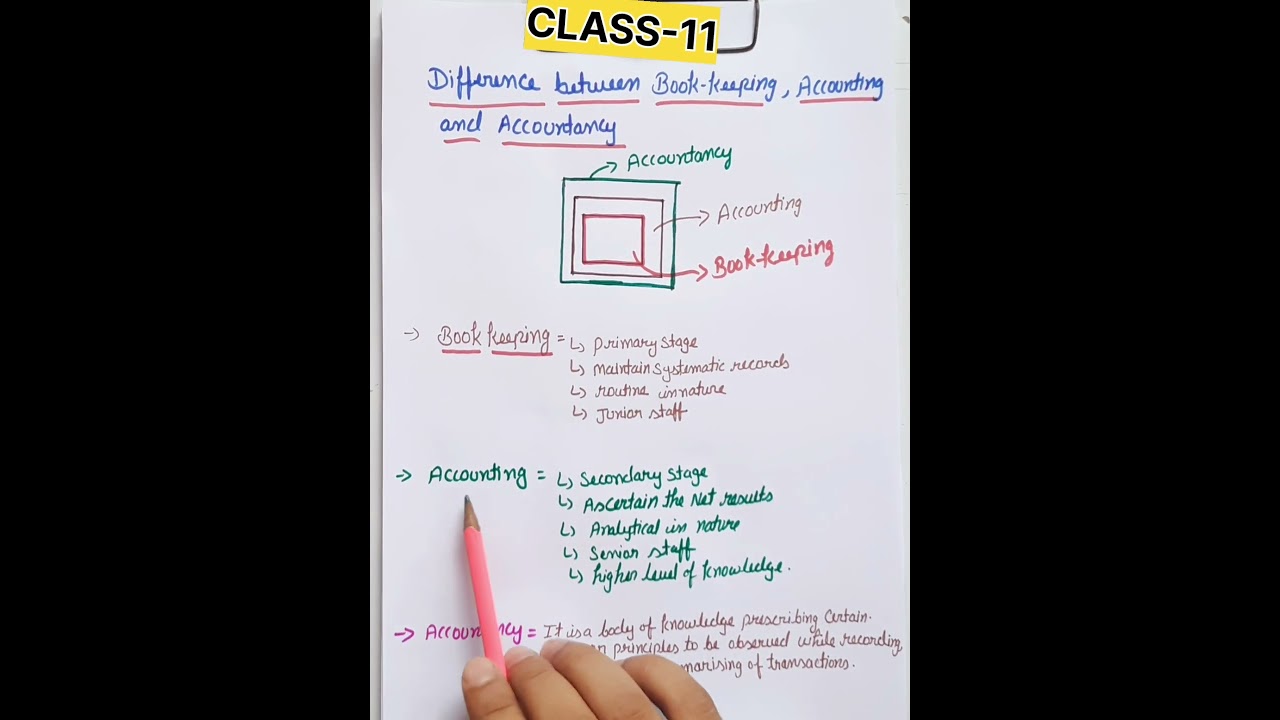 CLASS-11
Difference between Book-keeping, Accounting
and Accountancy
Accountancy
Accounting
Book-keeping
→ Book keeping = ↳ Primary stage
↳ maintain systematic records
↳ routine in nature
↳ Junior staff
→ Accounting = ↳ Secondary stage
↳ Ascertain the Net results
↳ Analytical in nature
↳ Senior staff
↳ higher level of knowledge.
→ = It is a body of knowledge prescribing certain
principles to be observed while recording,
of transactions.